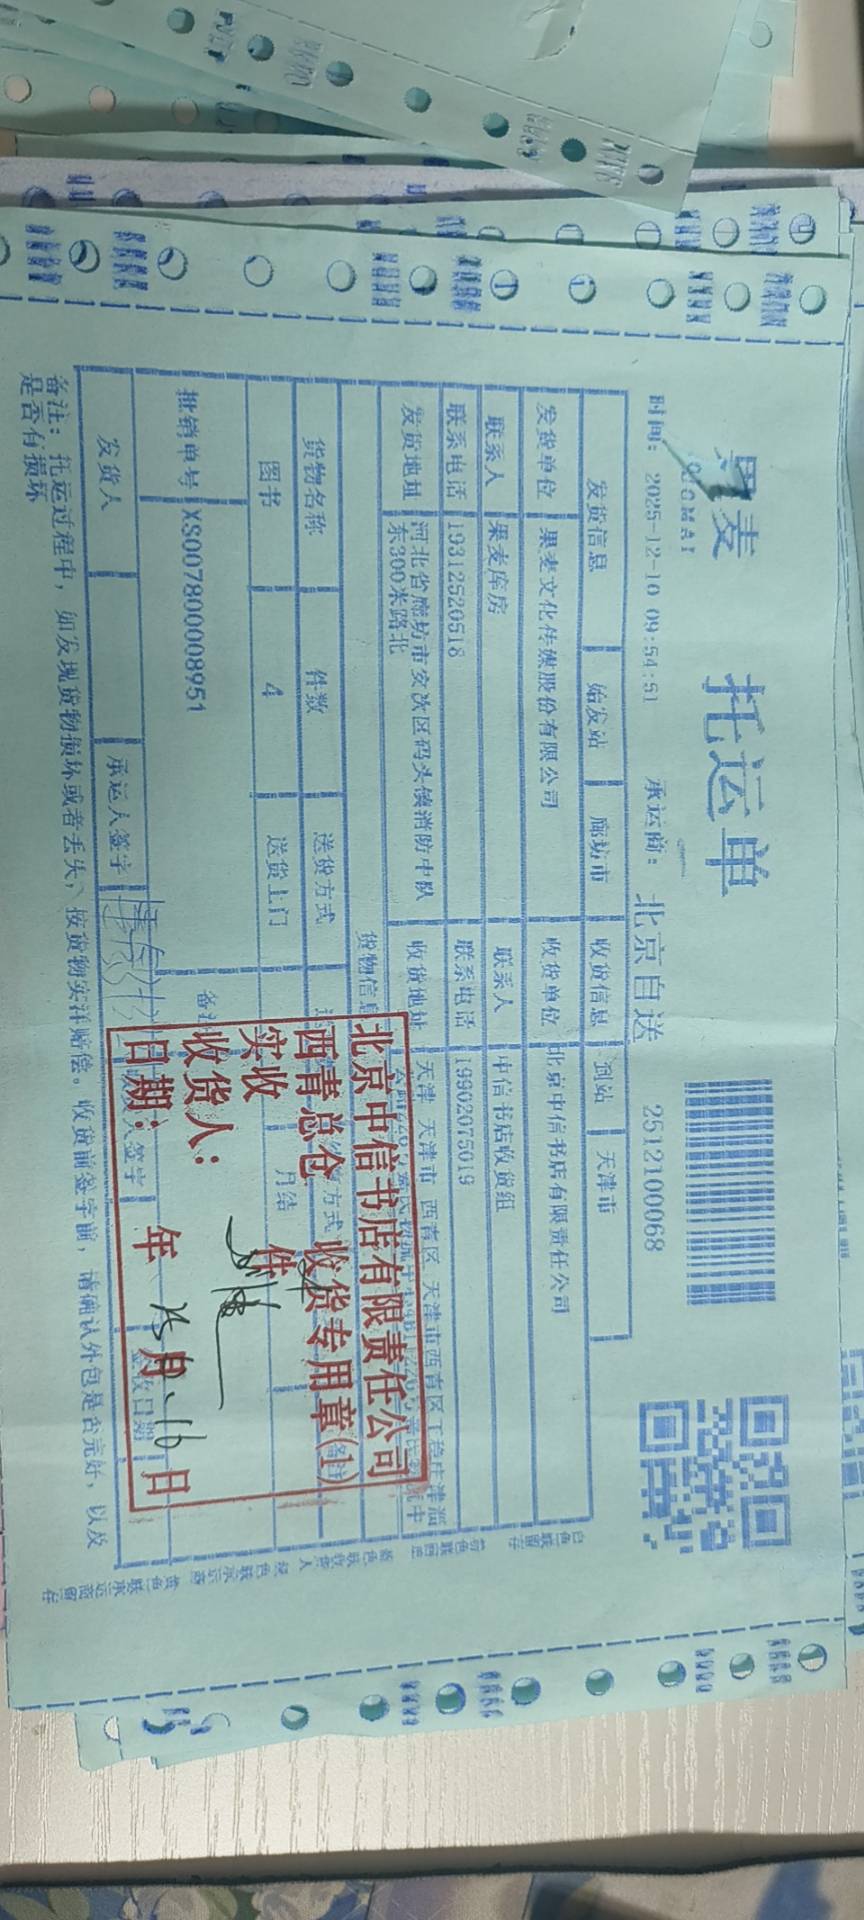 果麦
GUOMAI
托运单
时间： 2025-12-10 09:54:51 承运商： 北京自送 2512100068
发货信息 始发站 廊坊市 收货信息 到站 天津市
发货单位 果麦文化传媒股份有限公司 收货单位 北京中信书店有限责任公司
联系人 果麦库房 联系人 中信书店收货组
联系电话 19312520518 联系电话 19902075019
发货地址 河北省廊坊市安次区码头镇消防中队东300米路北 收货地址 天津 天津市 西青区 天津市西青区
货物信息
货物名称 件数 送货方式 方式 备注
图书 4 送货上门 月结
批销单号 XS007800008951 备注
发货人 承运人签字 签字 签收日期
备注：托运过程中，如发现货物损坏或者丢失，按货物实洋赔偿。收货前签字前，请确认外包是否完好，以及
是否有损坏
北京中信书店有限责任公司
西青总仓 收货专用章(1)
实收 件
收货人：
日期： 年 12月 16日
白色联留存
绿色联承运商
黄色联承运商留存